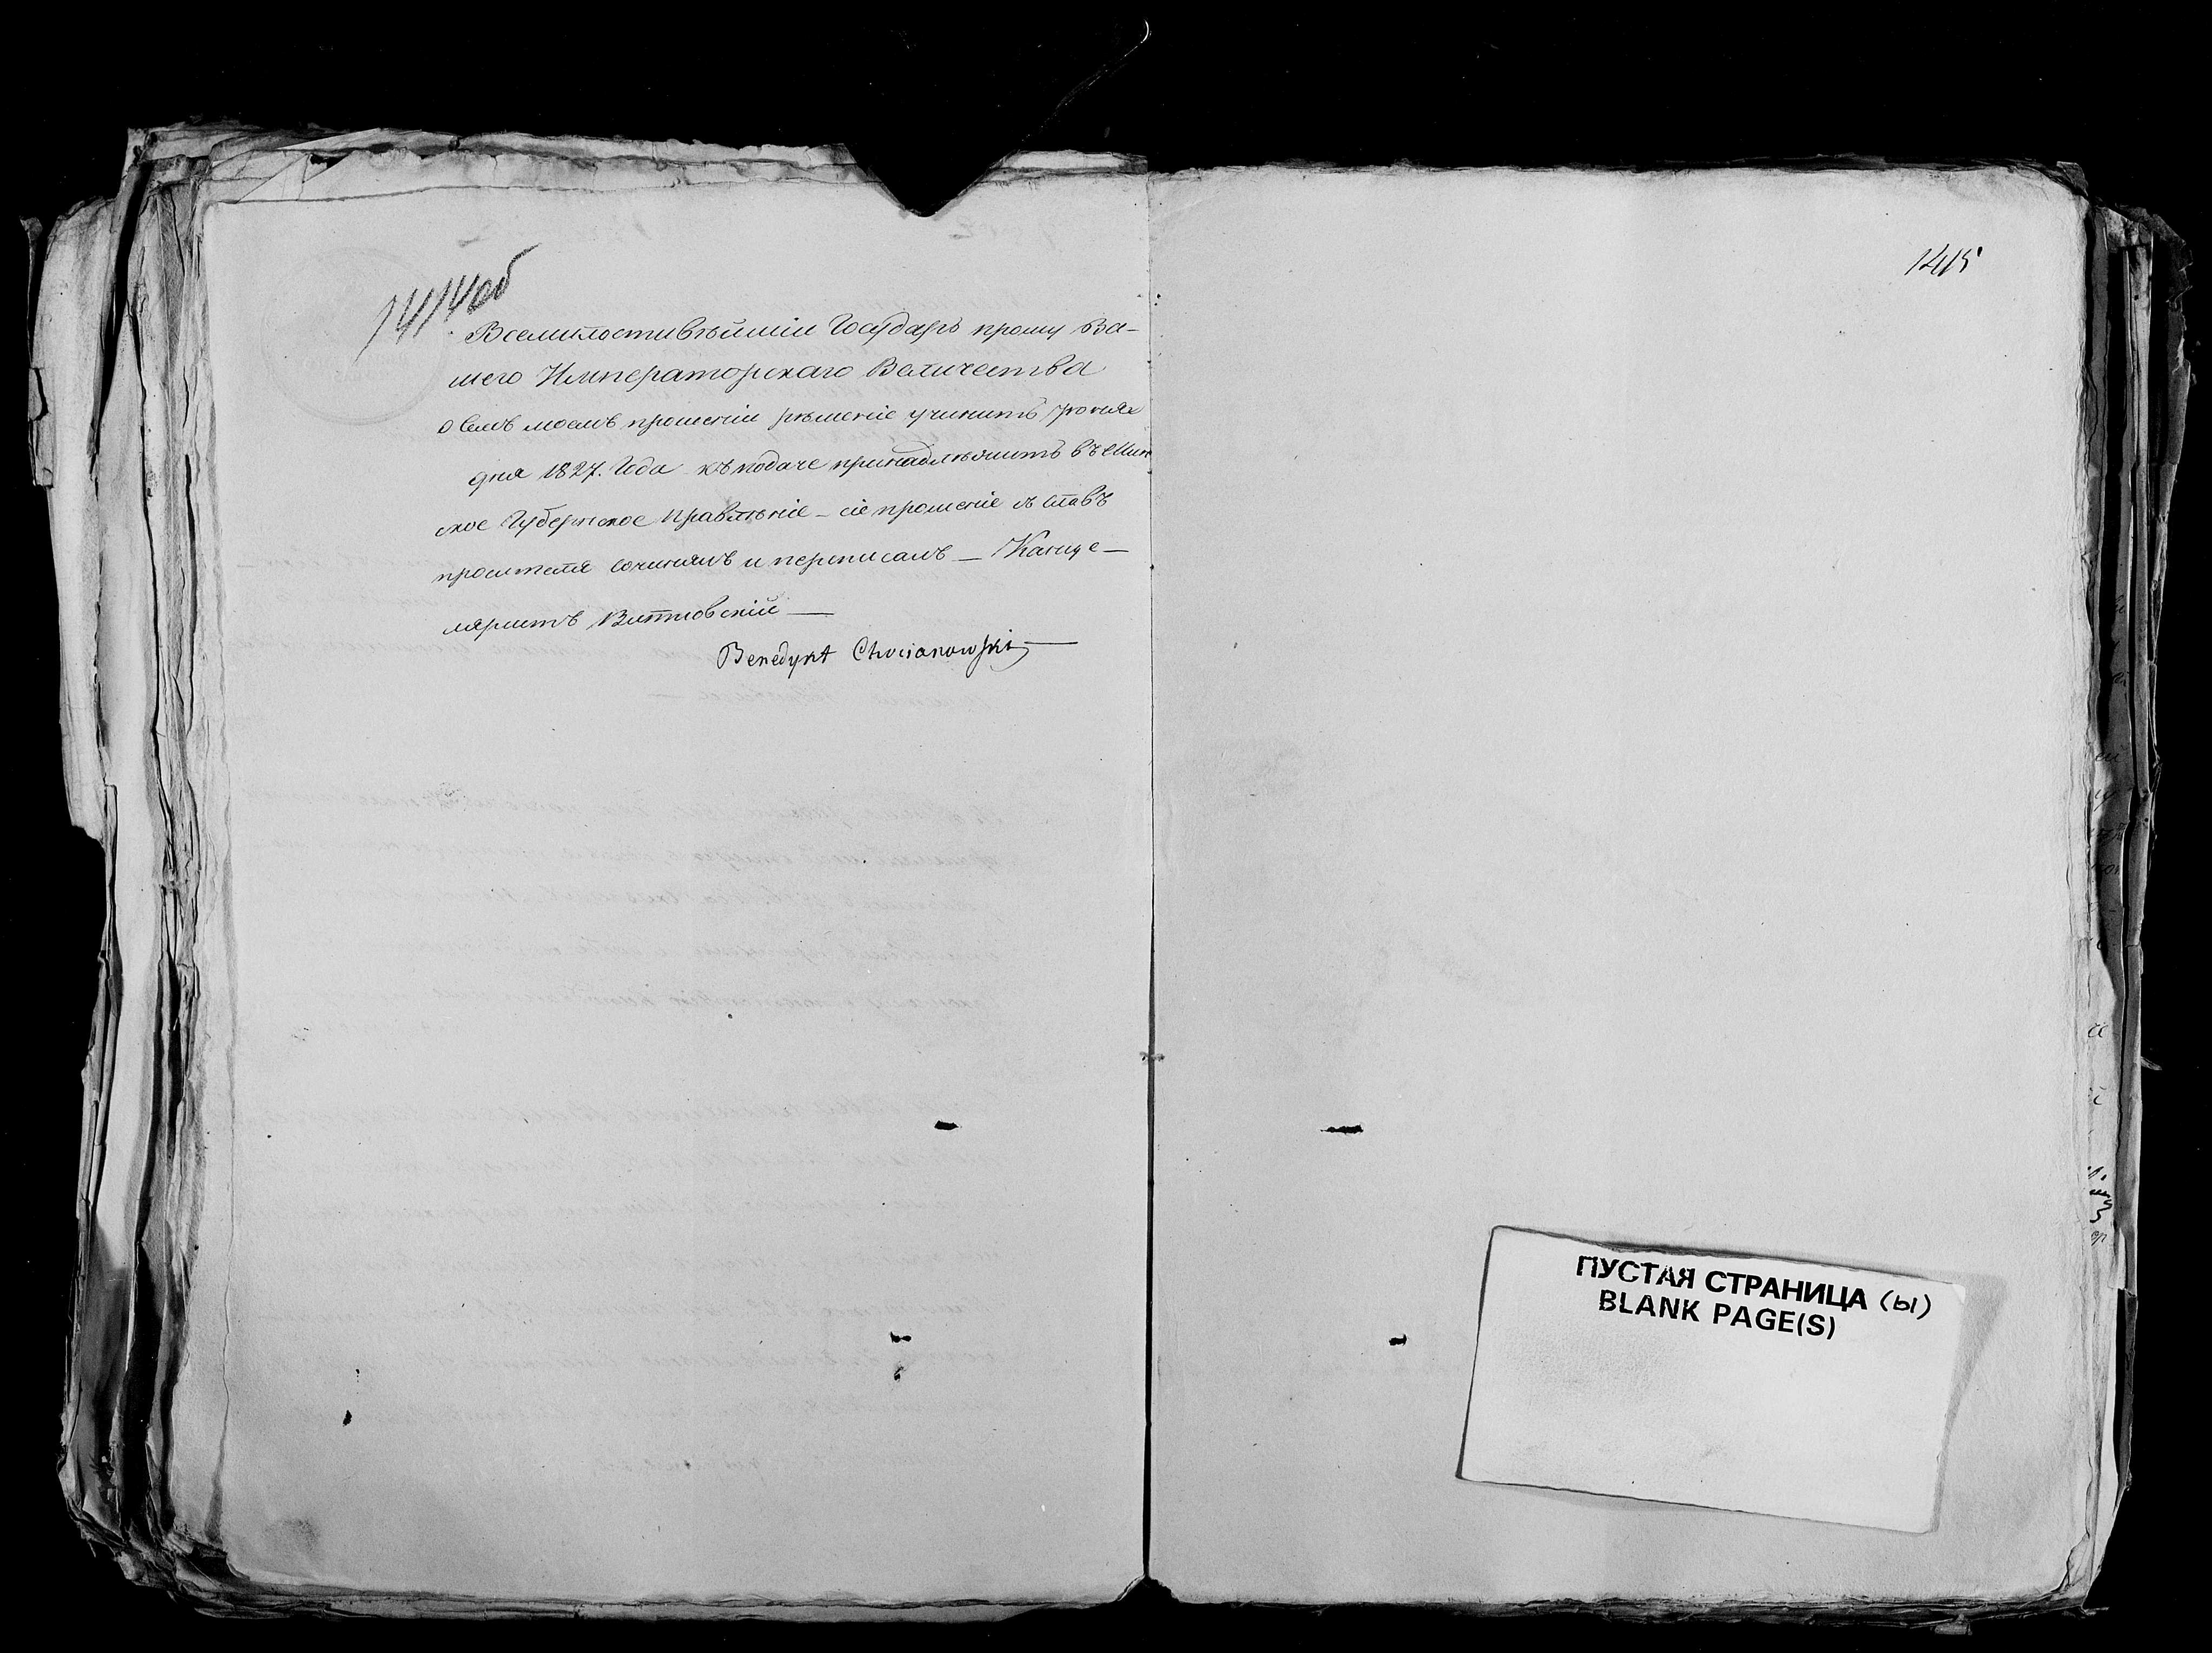 1414об
Всемилостивѣйшій Государь прошу Ва-
шего Императорскаго Величества
о семъ моемъ прошеніи рѣшеніе учинить
дня 1827. Года къ подаче принадлѣжитъ въ Мин
ское Губернское Правлѣніе – сіе прошеніе съ словъ
просителя сочинялъ и переписалъ – Канце-
ляристъ
Benedykt Chocianowski
1415
ПУСТАЯ СТРАНИЦА (Ы)
BLANK PAGE(S)